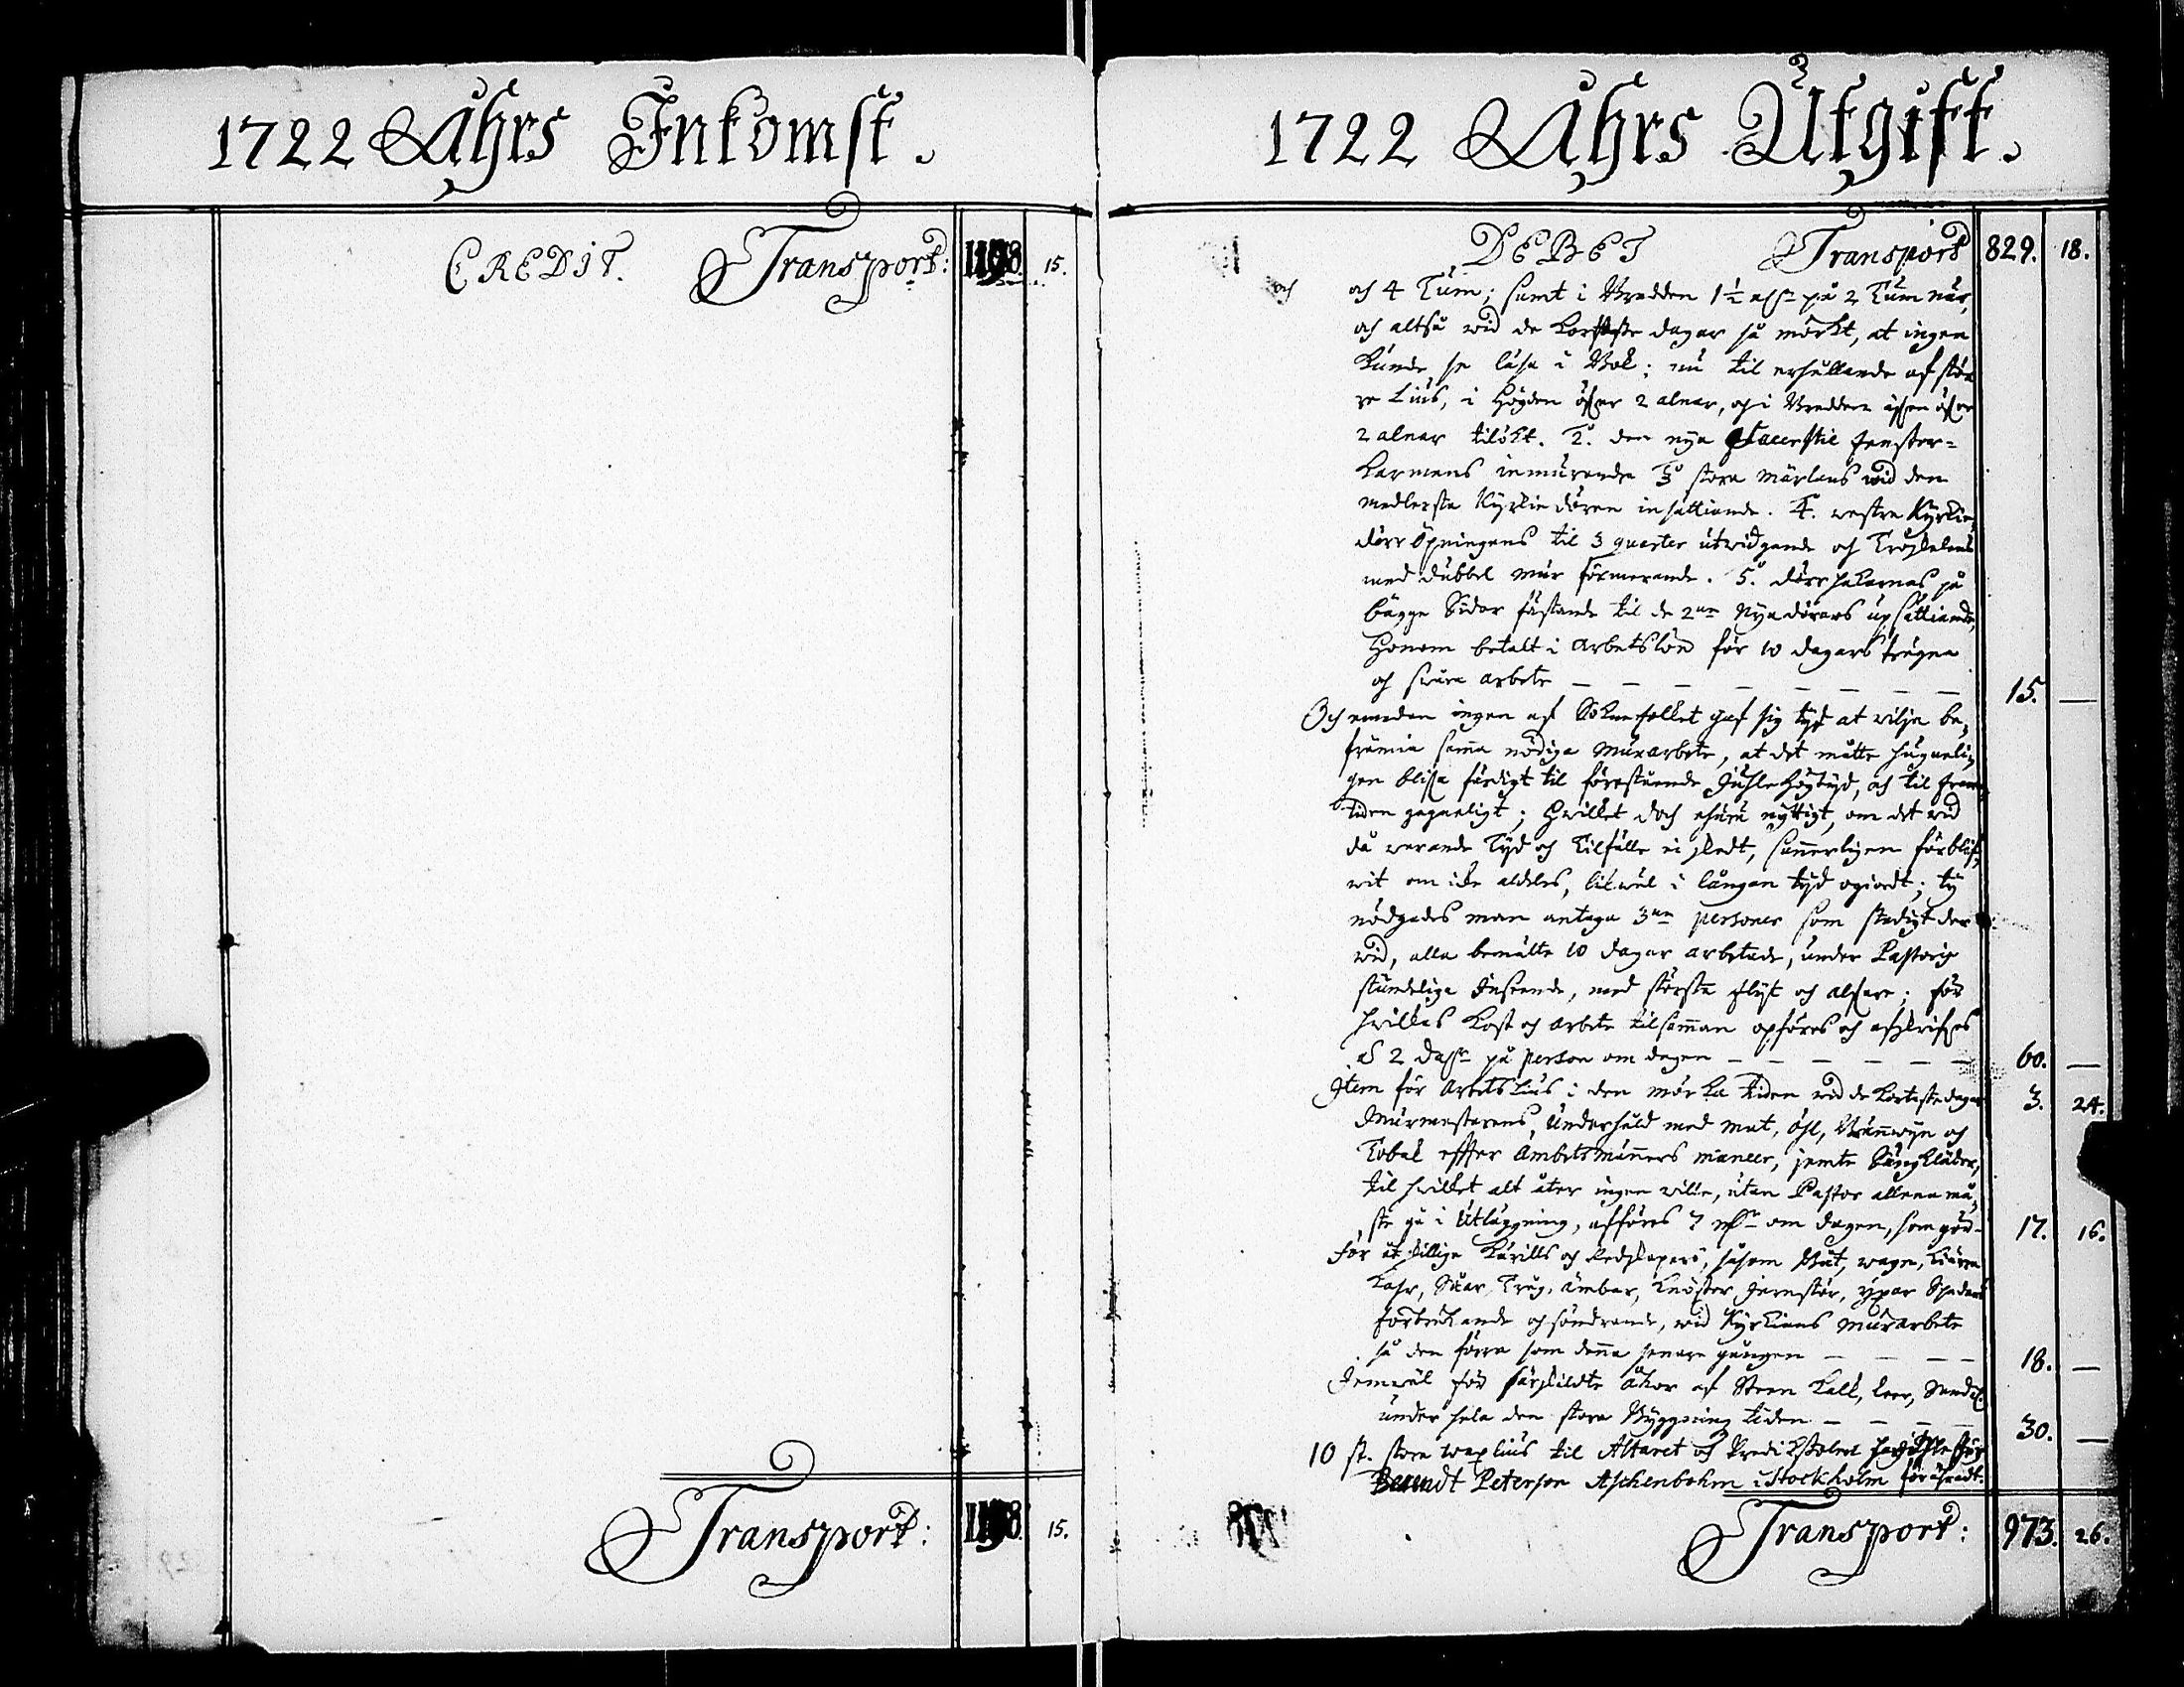 1722 Ährs Inkomst.
CREDIT. Transport: 15.
Transport: 15.
1722 Ährs Utgift.
DEBET Transport 829. 18.
och 4 Tum; samt i Bredden 1½ på 2 Tum när,
och altså wid de kortaste dagar så mörkt, at ingen
kunde se läsa i Bok; nu til erhållande af stör
re Lius, i Högden öfver 2 alnar, och i Bredden öfver
2 alnar tilökt. 2. den nya fenster=
karmens inmurande 3 stora märlans wid den
medlersta Kyrkie dören insättiande. 4. westra Kyrkie
dörr Öpningens til 3 quarter utwidgande och Tröskelens
med dubbel mur formerande. 5. dörr hakarnas på
bägge Sidor fästande til de 2ne Nya dörars upsättiande,
Honom betalt i arbetslön för 10 dagars trägna
och swåra arbete — — — — — — — — 15. —
Och emedan ingen af Soknefolket gaf sig tyd at wilja be,
främia samma nödiga murarbete, at det måtte
gen blifva färdigt til förestående Juhle Högtyd, och til fram
tiden gagneligt; Hwilket doch ehuru nyttigt, om det wid
då warande Tyd och Tilfälle ei skedt, sannerligen förblif
wit om icke aldeles, likwäl i långan tyd ogiordt; ty
nödgades man antaga 3ne personer som stadigt der
wid, alla bemälte 10 dagar arbetade, under Pastoris
stundeliga Inseende, med största flyt och alfvare; för
hwilkas kost och arbete tilsamman opföres och afskrifves
à 2 på person om dagen — — — — — — 60. —
Item för Arbets Lius i den mörka tiden wid de kortaste dagar 3. 24.
Murmestarens Underhåld med mat, öhl, Brännwyn och
Tobak efter Ämbetsmänners maneer, jemte Sängkläder,
til hwilket alt åter ingen wille, utan Pastor allena må,
ste gå i Utläggning, afföres 7 om dagen, som gör 17. 16.
För åt skillige Kärills och Redskapers, såsom Båt, wagn,
Såar, Tråg, ämbar, Jernstör, Spadars
förbrukande och söndrande, wid Kyrkians murarbete
så den förra som denna senare gången — — — — 18. —
Jemwäl för särskildte åkor af Sten kalk, leer, Sand
under hela den stora Byggning tiden — — — — 30. —
10 st. stora wax lius til Altaret och Predikstolen
Berendt Peterson Aschenbohm i Stockholm förähradt.
Transport: 973. 26.